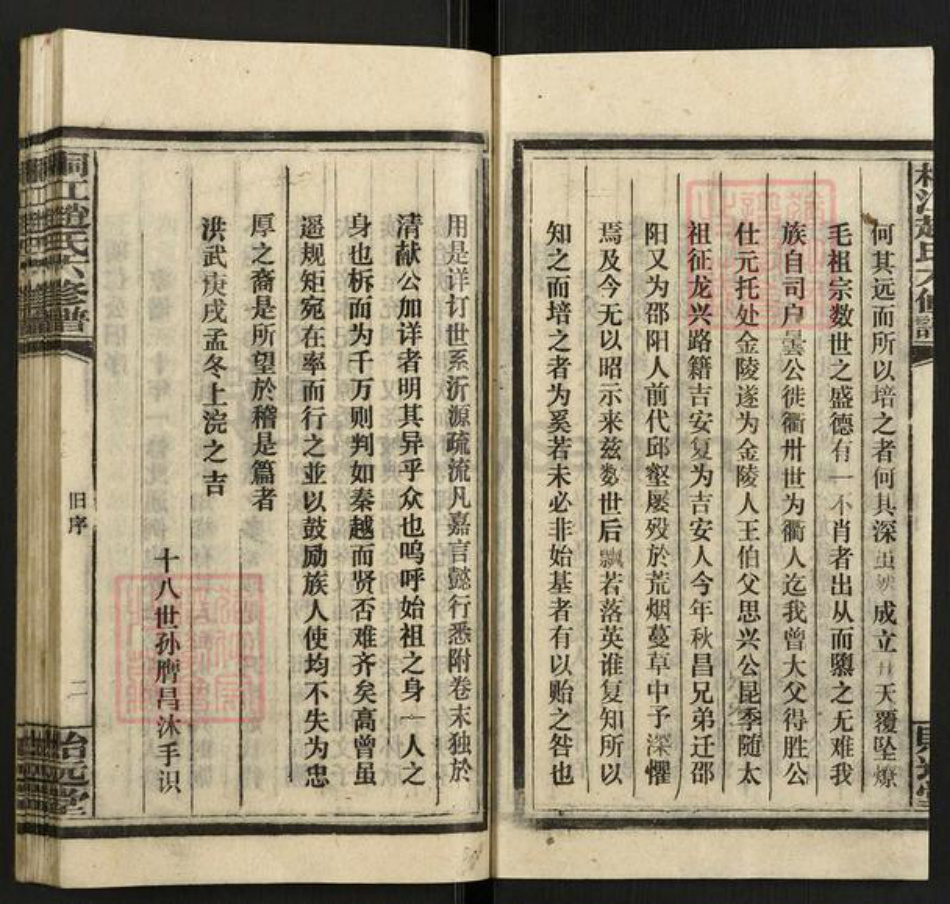 何其远而所以培之者何其深虽然成立升天覆坠燎
毛祖宗数世之盛德有一不肖者出从而隳之无难我
族自司户昙公徙衢卅世为衢人迄我曾大父得胜公
仕元托处金陵遂为金陵人王伯父思兴公昆季随太
祖征龙兴路籍吉安复为吉安人今年秋昌兄弟迁邵
阳又为邵阳人前代邱壑屡殁於荒烟蔓草中予深懼
焉及今无以昭示来兹数世后飘若落英谁复知所以
知之而培之者为奚若未必非始基者有以贻之咎也
用是详订世系沂源疏流凡嘉言懿行悉附卷末独於
清献公加详者明其异乎众也呜呼始祖之身一人之
身也柝而为千万则判如秦越而贤否难齐矣高曾虽
遥规矩宛在率而行之並以鼓励族人使均不失为忠
厚之裔是所望於稽是篇者
洪武庚戌孟冬上浣之吉
十八世孙膺昌沐手识
桐江趙氏六修譜
旧序
二